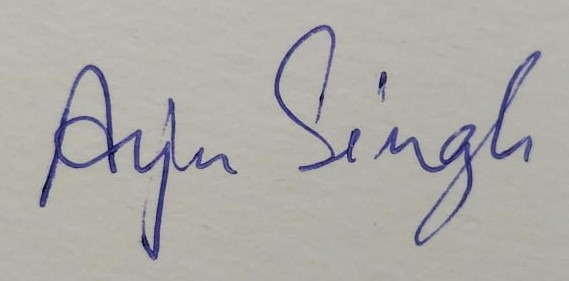 Arjun Singh